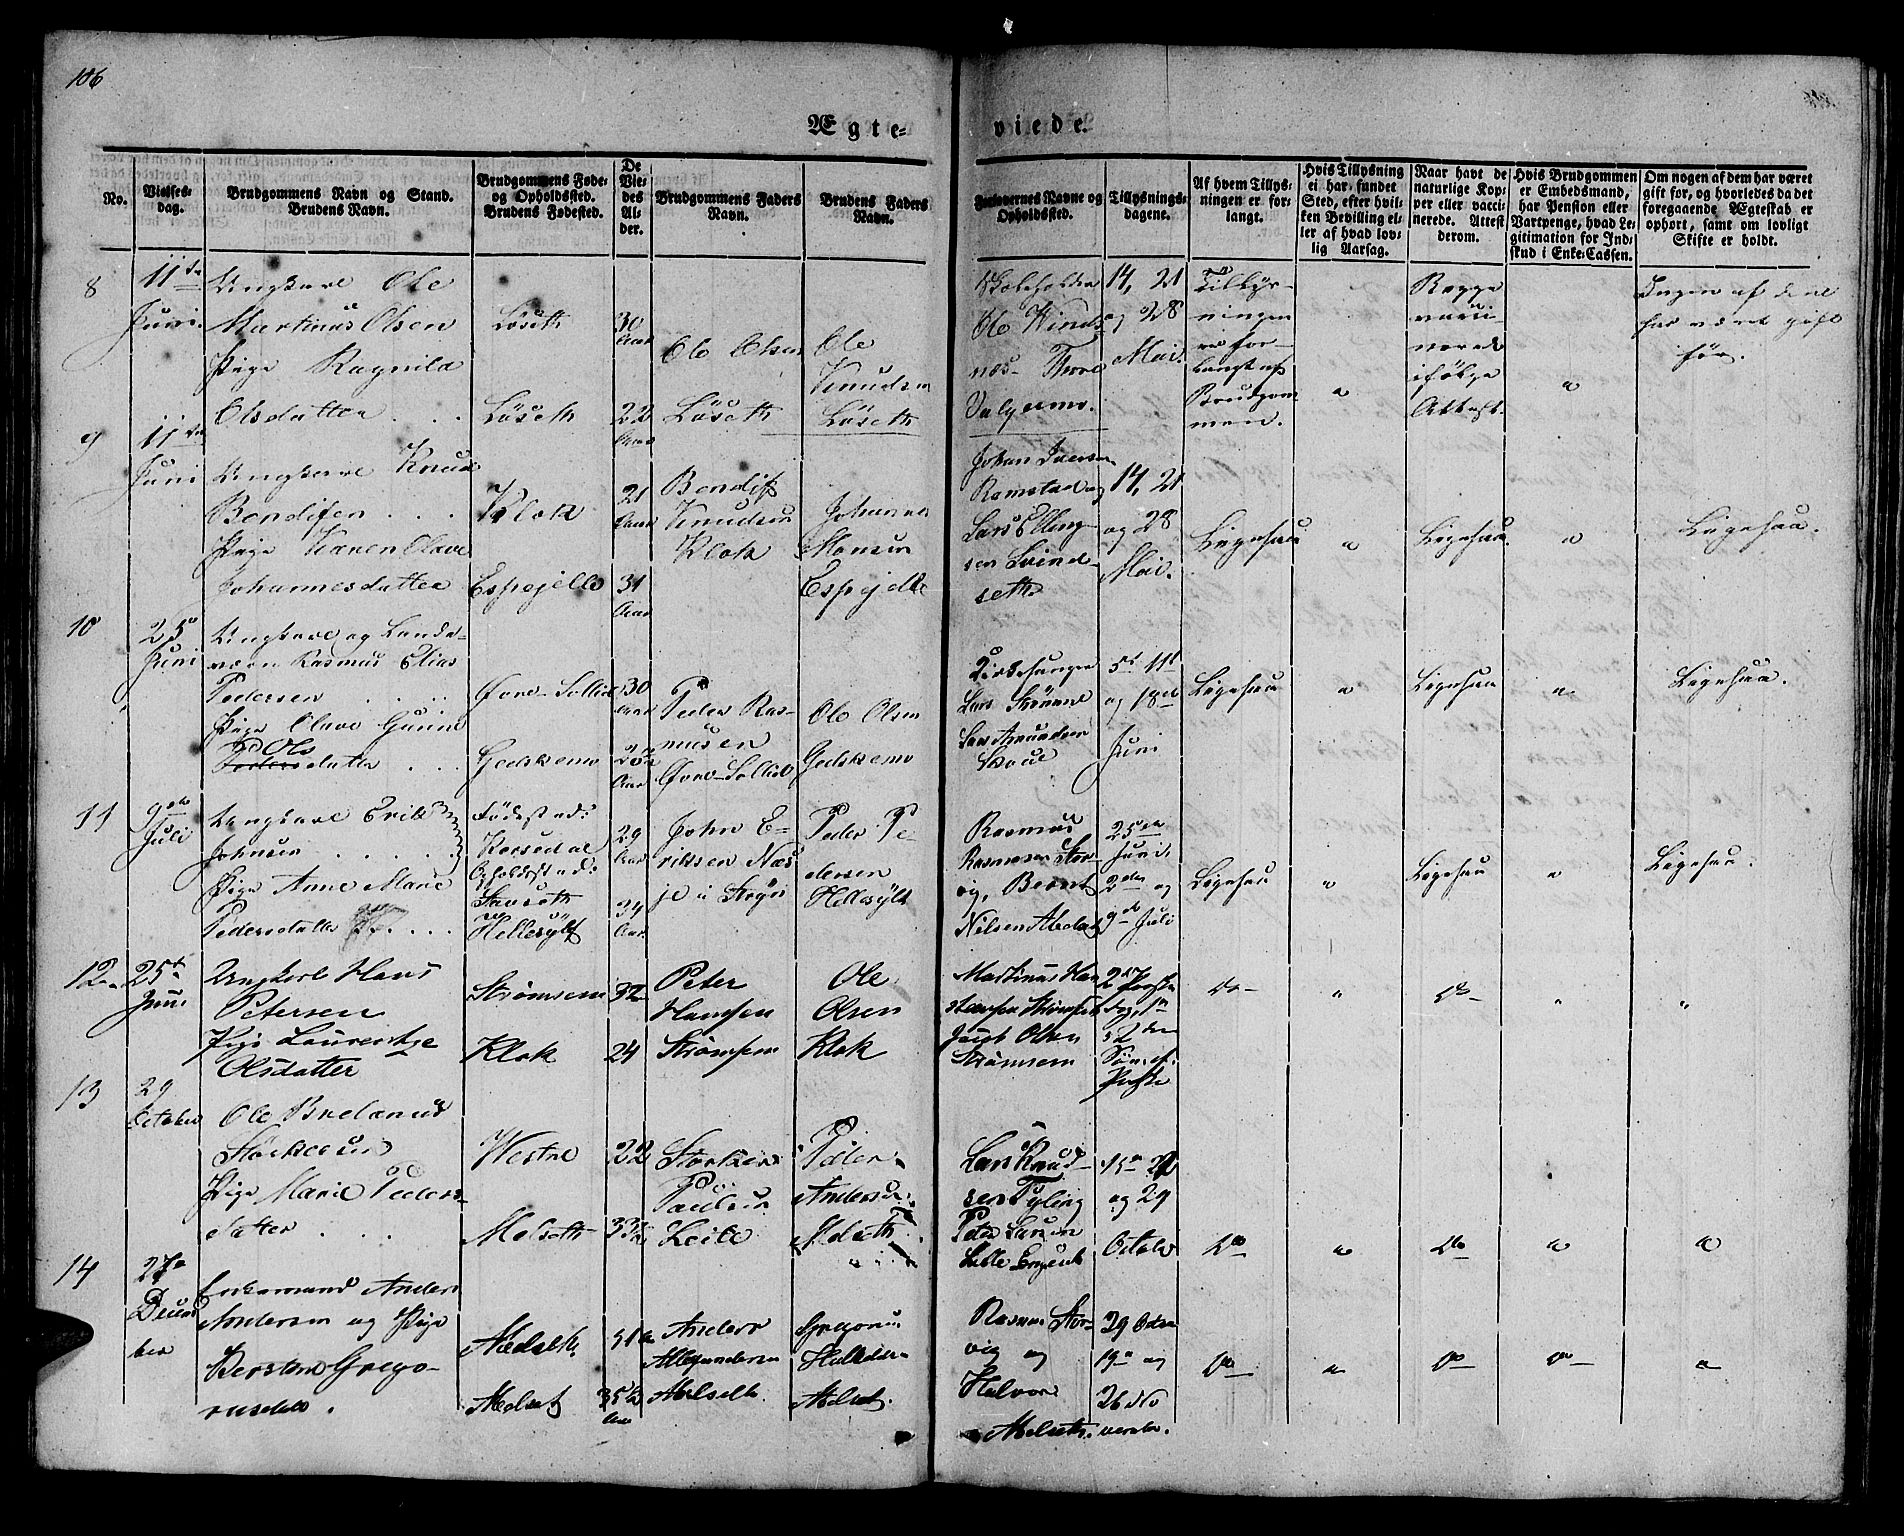 106
Ægte=
viede.
No.
Vielses=
dag.
Brudgommens Navn og Stand.
Brudens Navn.
Brudgommens Føde=
og Opholdssted.
Brudens Fødested.
De
Vie=
des
Al=
der.
Brudgommens Faders
Navn.
Brudens Faders
Navn.
Forlovernes Navne og
Opholdssted.
Tillysnings=
dagene.
Af hvem Tillys=
ningen er for=
langt.
Hvis Tillysning
ei har fundet
Sted, efter hvil=
ken Bevilling el=
ler af hvad lov=
lig Aarsag.
Naar havt de
naturlige Kop=
per eller vacci=
nerede. Attest
derom.
Hvis Brudgommen
er Embedsmand,
har Pension eller
Vartpenge, hvad Le=
gitimation for Ind=
skud i Enke=Cassen.
Om nogen af dem har været
gift før, og hvorledes da det
foregaaende Ægteskab er
ophørt, samt om lovligt
Skifte er holdt.
8
11te
Juni.
Ungkarl Ole
Martinus Olsen
Pige Ragnild
Olsdatter
Løseth
Løseth
30
Aar
22
Aar
Ole Olsen
Løseth
Ole
Knudsen
Løseth
Skoleholder
Ole Winds=
næs
14, 21
og 28
Mai.
Tillys=
ningen
er for=
langt af
Brudgom=
men.
"
Begge
vacci=
nerede
ifølge
Attest.
"
Ingen af dem
har været gift
før.
9
11te
Juni
Ungkarl Knud
Bendixen
Pige Karen Olave
Johannesdatter
Klok
Espejelle
21
Aar
31
Aar
Bendix
Knudsen
Klok
Johannes
Monsen
Espejelle
Johan Iversen
Ramstad og
Lars Elling=
sen Svind=
seth
14, 21
og 28
Mai.
Ligesaa
"
Ligesaa.
"
Ligesaa.
10
25
Juni
Ungkarl og Lands=
værn Rasmus Elias
Pedersen
Pige Olave Gunne
Ols
Pedersdatter
Øvre-Sollid
Gedskemo
30
Aar
Aar
Peder Ras=
musen
Øvre-Sollid
Ole Olsen
Gedskemo
Kirkesanger
Lars Strømme
Lars Amundsen
Skoue
5t 11t
og 18de
Juni
Ligesaa
"
Ligesaa
"
Ligesaa.
11
9de
Juli
Ungkarl Erik
Johnsen
Pige Anne Marie
Pedersdatter
Fødested:
Korsedal
Opholdsted:
Hellesylt
29
Aar
34
Aar
John E=
riksen Næs=
je i Stryn
Peder Pe
dersen
Hellesylt
Rasmus
Rasmusen Stor=
vig, Bernt
Nilsen
25de
Juni,
2den og
9de Juli
Ligesaa
"
Ligesaa
"
Ligesaa.
12
25t
Juni
Ungkarl Hans
Petersen
Pige
Olsdatter
Strømsem
Klok
32
24
Peter
Hansen
Strømsem
Ole
Olsen
Klok
Martinus Han
Jacob Olsen
Strømsem
Paaske
Do
"
Do
"
"
13
29
October
Ole Bredanus
Størkersen
Pige Marie Peders=
datter
Westre
Melseth
22
Størker
Paulsen
Peder
Andersen
Melseth
Lars Knud=
sen Tyling
Peter Larsen
Lille
15de 22
og 29
October
Do
"
Do
"
"
14
27de
Decem
ber
Enkemand Anders
Andersen og Pige
Grego=
rusdatter.
Melseth
Melset
Anders
Melseth
Melset.
Rasmus Stor=
vig og
Halvor
Melseth.
29 Octbr
19de og
26 No
vember.
Do
"
Do
Do
"